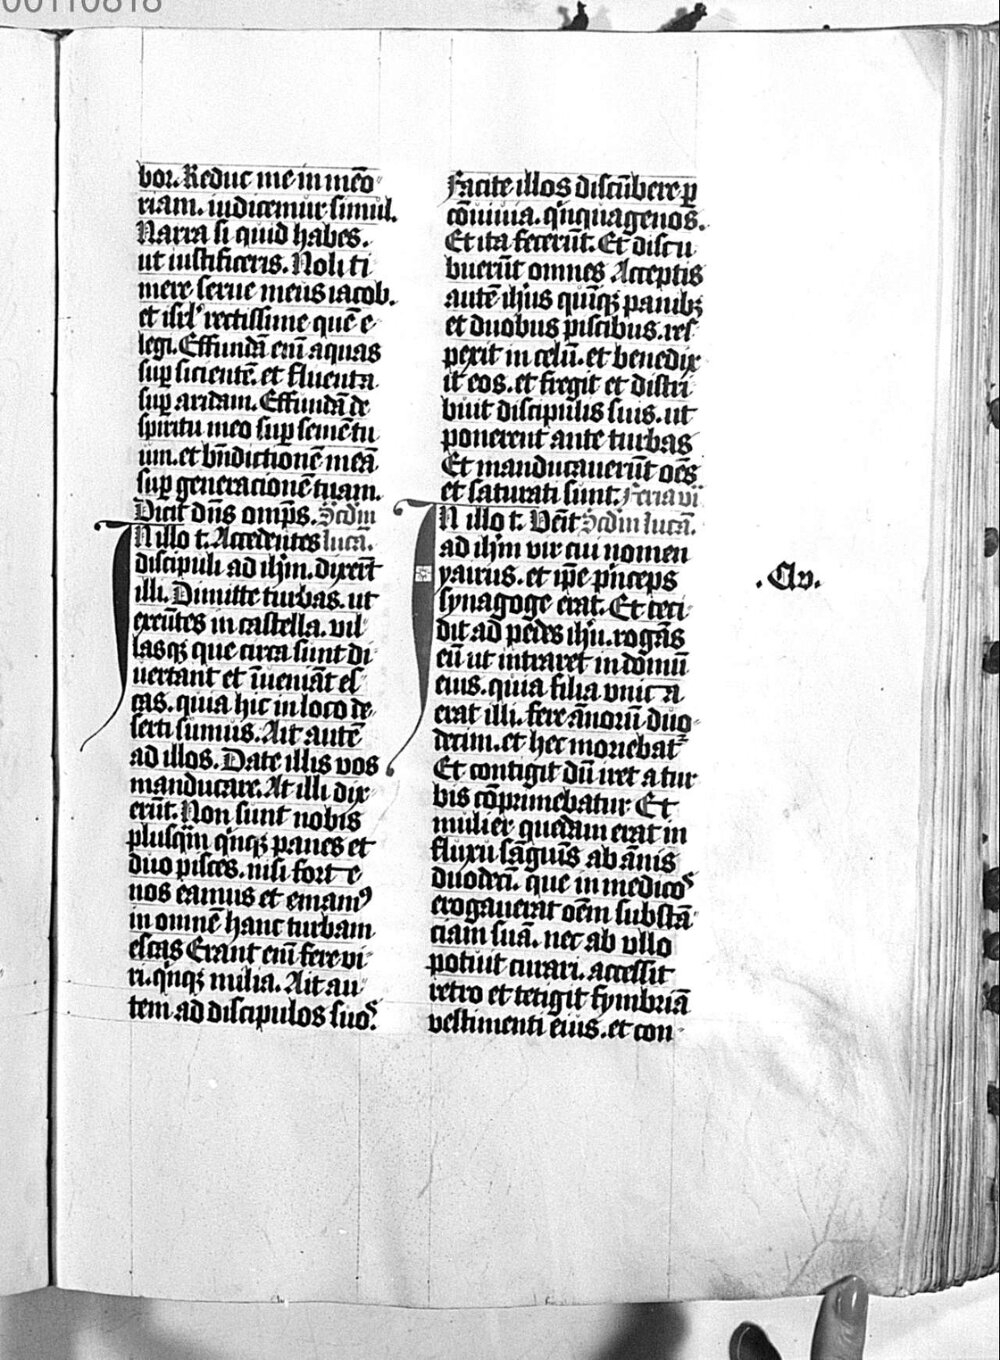 00110818
bor. Reduc me in meō
riam. iudicemur simul.
Narra si quid habes.
ut iustificeris. Noli ti
mere serue meus iacob.
et isrl' rectissime quē e
legi. Effundā eni aquas
sup sicientē. et fluenta
sup aridam. Effundā de
spiritu meo sup semē tu
um. et bn̄dictionē meā
sup generacionē tuam.
Dicit dn̄s omp̄s. Scdm
IN illo t. Accedentes luca.
discipuli ad ihm. dixerūt
illi. Dimitte turbas. ut
exeūtes in castella. vil
lasq; que circa sunt di
uertant et īueniāt es
cas. quia hic in loco de
serti sumus. Ait autē
ad illos. Date illis vos
manducare. At illi dix
erūt. Non sunt nobis
plusq̄m qinq; panes et
duo pisces. nisi forte
nos eamus et emamꝰ
in omnē hanc turbam
escas Erant eni fere vi
ri. qinq; milia. Ait au
tem ad discipulos suos.
Facite illos discūbere ꝑ
cōuiuia. qinquagenos.
Et ita fecerūt. Et discu
buerūt omnes Acceptis
autē ihus quinq; panib;
et duobus piscibus. res
pexit in celū. et benedix
it eos. et fregit et distri
buit discipulis suis. ut
ponerent ante turbas
Et manducauerūt oēs
et saturati sunt. Feria vi
IN illo t. Venit Scdm lucā.
ad ihm vir cui nomen
yairus. et ipē pinceps
synagoge erat. Et ceci
dit ad pedes ihu. rogās
eū ut intraret in domū
eius. quia filia vnica
erat illi. fere ānorū duo
decim. et hec moriebat᷑
Et contigit dū iret a tur
bis cōprimebatur Et
mulier quedam erat in
fluxu sāguis ab ānis
duodeci. que in medicos
erogauerat oēm substā
ciam suā. nec ab vllo
potuit curari. accessit
retro et tetigit fymbriā
vestimenti eius. et con
.Clv.